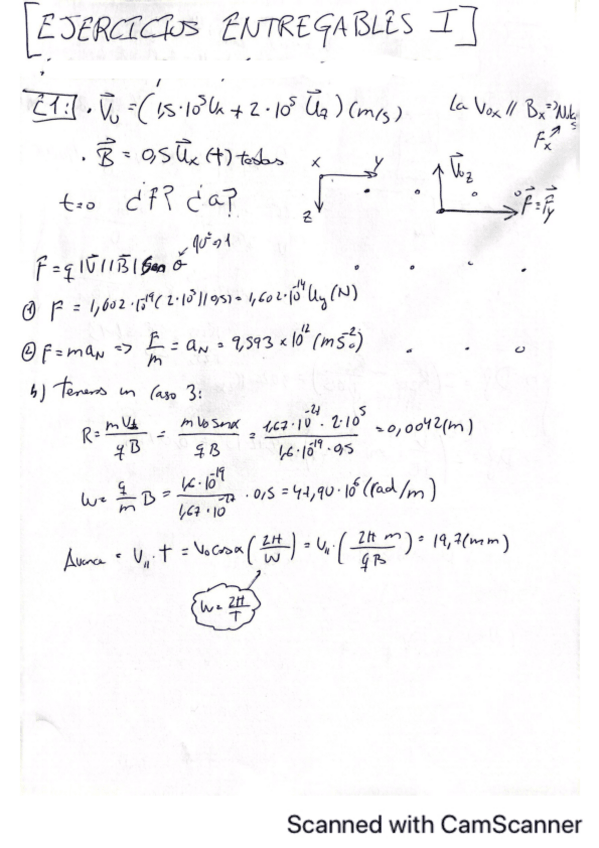 [EJERCICIOS ENTREGABLES I]
C1: · V⃗₀ = (1,5·10⁵ Ux + 2·10⁵ U⃗z) (m/s) La V₀x // Bx ⇒ Nula
Fx
· B⃗ = 0,5 U⃗x (T) todas
x y
z
V⃗₀z
F⃗ = F⃗y
t=0 ¿f? ¿a?
90º=1
F = q |V⃗| |B⃗| Sen θ
① F = 1,602·10⁻¹⁹ (2·10⁵)(0,5) = 1,602·10⁻¹⁴ Uy (N)
② F = m aN => F/m = aN = 9,593 × 10¹² (m s⁻²)
b) Tenemos un Caso 3:
R = mV⊥/qB = m V₀ senα/qB = 1,67·10⁻²⁷ · 2·10⁵/1,6·10⁻¹⁹ · 0,5 = 0,0042 (m)
W = q/m B = 1,6·10⁻¹⁹/1,67·10⁻²⁷ · 0,5 = 47,90·10⁶ (rad/m)
Avance = V∥ · T = V₀ cosα (2π/W) = V∥ · (2π m/qB) = 19,7 (mm)
W = 2π/T
Scanned with CamScanner